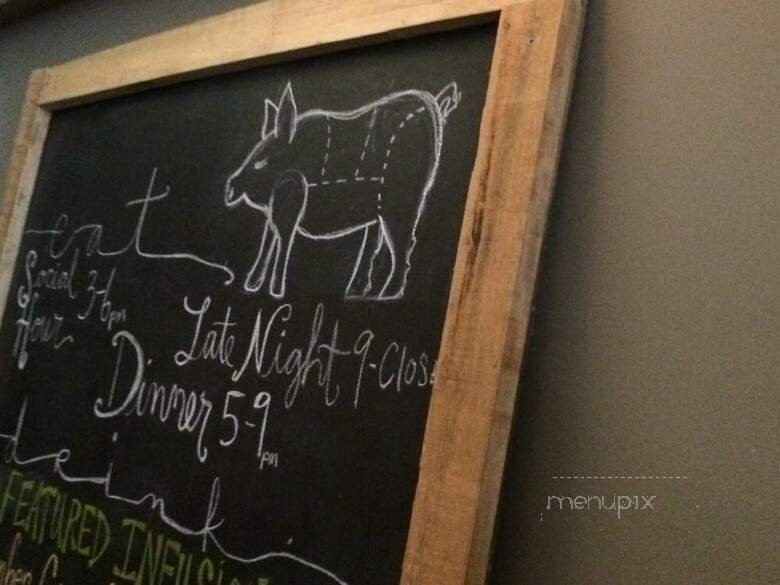 eat
Social 3-6pm
Hour
Late Night 9-Close
Dinner 5-9pm
drink
FEATURED INFUSI
menupix